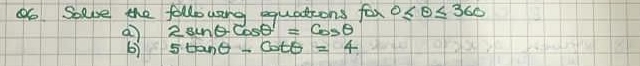 Q6. Solve the following equations for 0 ≤ θ ≤ 360
a) 2 sinθ Cosθ = Cosθ
b) 5 tanθ - Cotθ = 4